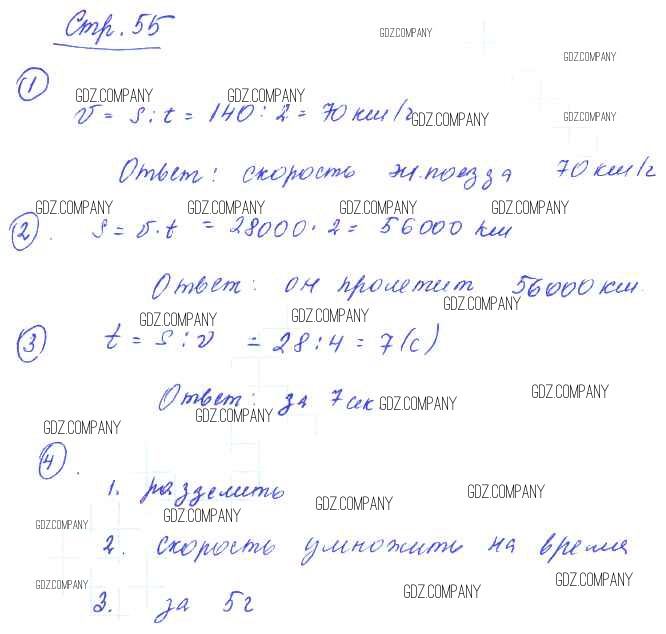 Стр. 55
GDZ.COMPANY
GDZ.COMPANY
1
GDZ.COMPANY GDZ.COMPANY
v = s : t = 140 : 2 = 70 км/г
GDZ.COMPANY GDZ.COMPANY
Ответ: скорость ж.поезда 70 км/г
GDZ.COMPANY GDZ.COMPANY GDZ.COMPANY GDZ.COMPANY
2. s = v · t = 28000 · 2 = 56000 км
Ответ: он пролетит 56000 км.
GDZ.COMPANY
GDZ.COMPANY GDZ.COMPANY
3 t = s : v = 28 : 4 = 7 (с)
GDZ.COMPANY
Ответ: за 7 сек
GDZ.COMPANY
GDZ.COMPANY
GDZ.COMPANY
4.
1. разделить
GDZ.COMPANY
GDZ.COMPANY
GDZ.COMPANY
GDZ.COMPANY
2. скорость умножить на время
GDZ.COMPANY
GDZ.COMPANY
GDZ.COMPANY
3. за 5г